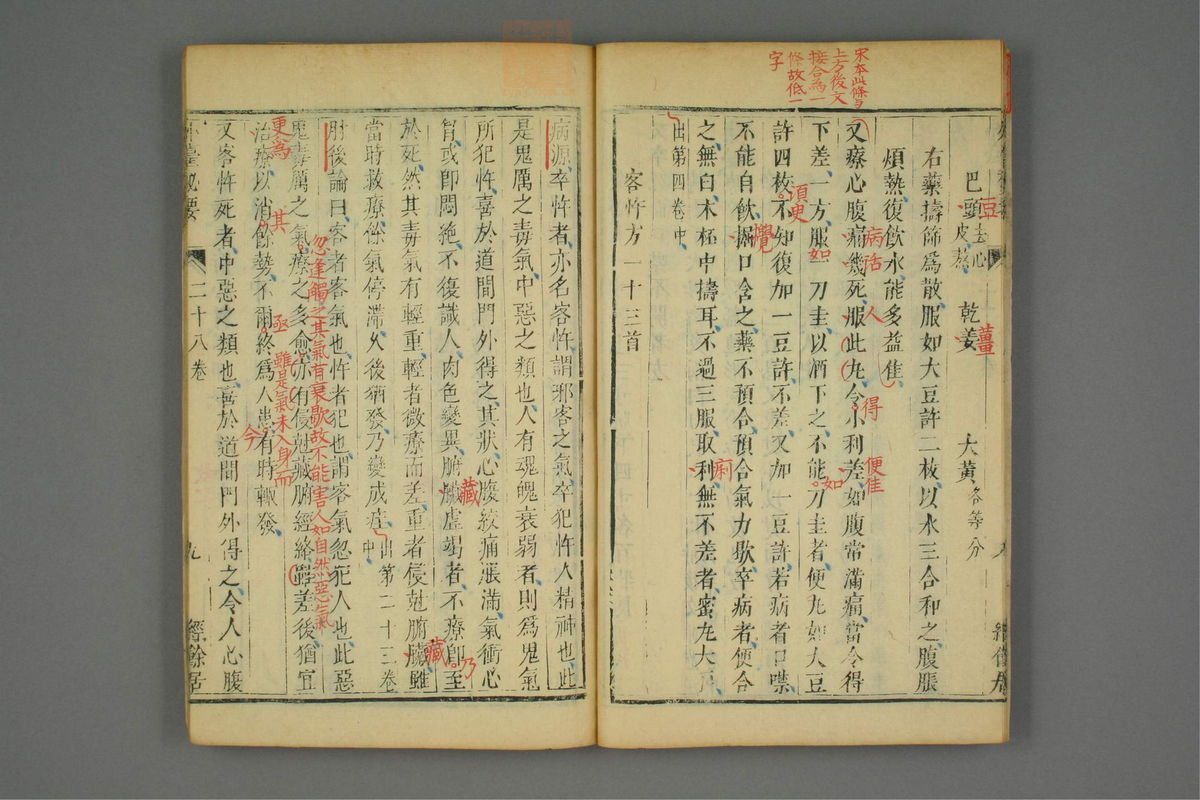 宋本此條与
上方後文
接合為一
條故低一
字
巴頭去心皮熬 乾姜 大黃各等分
豆
薑
右藥擣篩爲散服如大豆許二枚以水三合和之腹脹
煩熱復飲水能多益佳
又療心腹痛幾死服此丸令小利差如腹常滿痛當令得
病活 人 得 便佳
下差一方服一刀圭以酒下之不能刀圭者便丸如大豆
如 如
許四枚不知復加一豆許不差又加一豆許若病者口噤
須臾
不能自飲掘口含之藥不預合預合氣力歇卒病者便合
之無臼木杯中擣耳不過三服取利無不差者蜜丸大
痢
出第四卷中
客忤方一十三首
病源卒忤者亦名客忤謂邪客之氣卒犯忤人精神也此
是鬼厲之毒氣中惡之類也人有魂魄衰弱者則爲鬼氣
所犯忤喜於道間門外得之其狀心腹絞痛漲滿氣衝心
胷或卽悶絶不復識人肉色變異腑臟虛竭者不療卽至
藏 乃
於死然其毒氣有輕重輕者微療而差重者侵尅腑臟雖
藏
當時救療餘氣停滯久後猶發乃變成疰出第二十三卷中
肘後論曰客者客氣也忤者犯也謂客氣忽犯人也此惡
忽逢觸之其氣有衰歇故不能害人如自然惡氣
鬼毒厲之氣療之多愈亦有侵尅藏腑經絡雖差後猶宜
其 亟 雖是氣未入身而
更為
治療以消餘勢不爾終爲人患有時輙發
今
又客忤死者中惡之類也喜於道間門外得之令人心腹
外臺秘要 二十八卷 九 經餘居